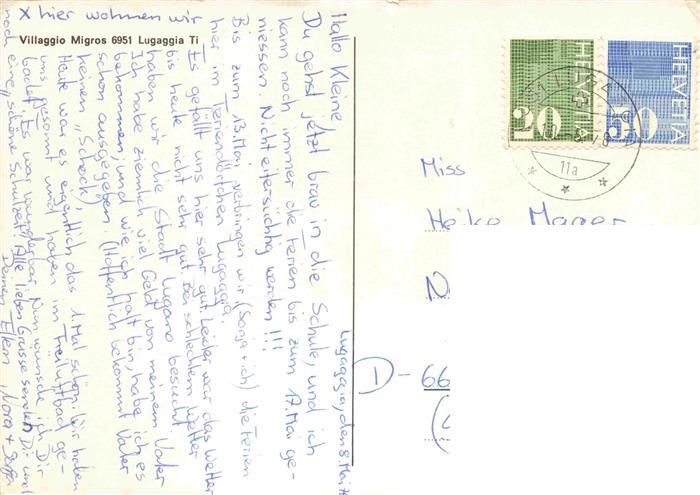 x hier wohnen wir
Villaggio Migros 6951 Lugaggia Ti
Lugaggia, den 8. Mai
Hallo Kleine
Du gehst jetzt brav in die Schule, und ich
kann noch immer die Ferien bis zum 17. Mai ge-
niessen. Nicht eifersüchtig werden!!!
Bis zum 13. Mai verbringen wir (Sonja + ich) die Ferien
hier im Feriendörfchen Lugaggia.
Es gefällt uns hier sehr gut. Leider war das Wetter
bis heute nicht sehr gut. Bei schlechtem Wetter
haben wir die Stadt Lugano besucht.
Ich habe ziemlich viel Geld von meinem Vater
bekommen, und wie ich halt bin, habe ich es
schon ausgegeben. (Hoffentlich bekommt Vater
keinen „Schock).
Heute war es eigentlich das 1. Mal schön. Wir haben
uns gesonnt und haben im Freiluftbad ge-
badet. Es war wunderbar. Nun wünsche ich Dir
noch eine „schöne Schulzeit". Alle lieben Grüsse senden Dir und
Deinen Eltern, Nora + Sonja
HELVETIA
20
HELVETIA
50
11a
Miss
Heike Mager
D-66